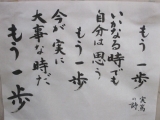 もう一歩
いかなる時でも
自分は思う
もう一歩
今が実に
大事な時だ
もう一歩
実篤
の詩